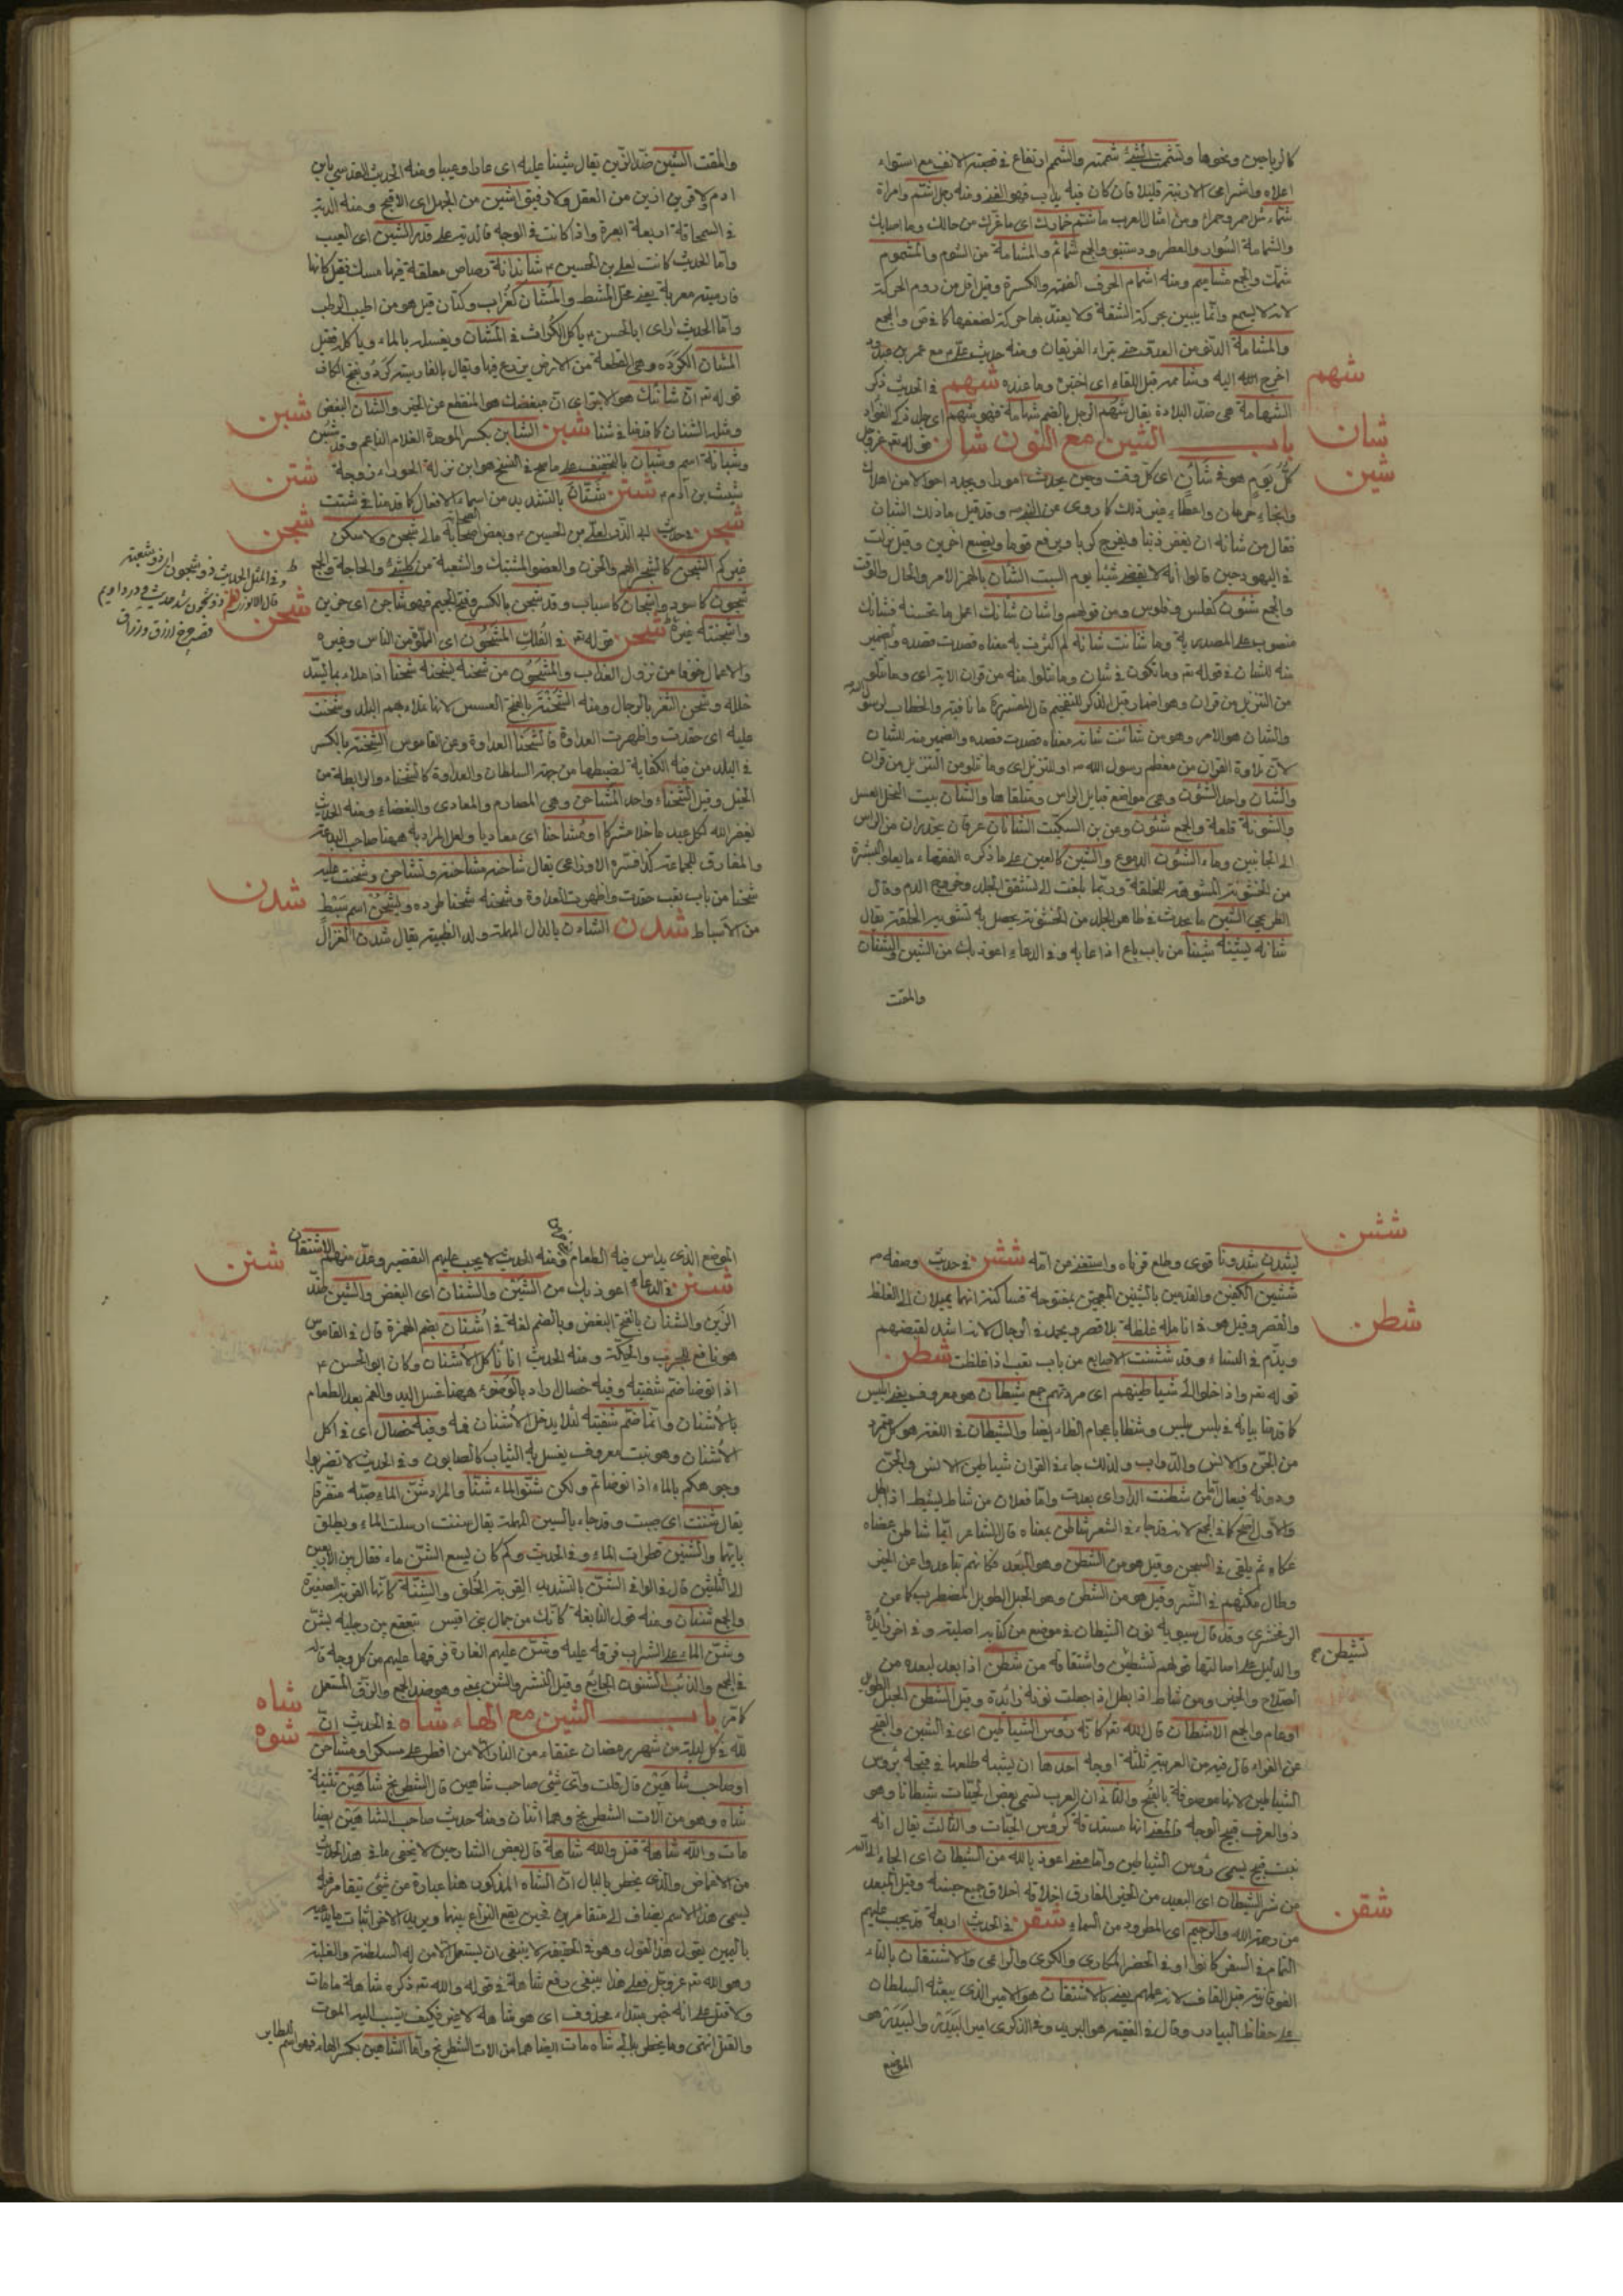 كالرياحين ونحوها وتشممت الشئ شممته والشمم ارتفاع في قصبة الانف مع استواء
اعلاه واشراف الارنبة قليلا فان كان فيه
شماء مثل احمر وحمراء ومن امثال العرب ما شمم خمارك اى ما غرك من حالك وما اصابك
والجمع شمائم والمشامة من الشم والمشموم
شمك والجمع مشاميم ومنه اشمام الحرف الضمة والكسرة وقيل اقل من روم الحركة
لانه لا يسمع وانما يتبين بحركة الشفة ولا يعتد بها حركة لضعفها والجمع
والمشامة الدنو من العدو حتى يتراء الفريقان ومنه حديث على مع عمرو بن عبدود
اخرج اليه وشامه قبل اللقاء اى اختبر وما عنده شهم في الحديث ذكر
شهم
الشهامة هى ضد البلادة يقال شهم الرجل بالضم شهامة فهو شهم اى جلد ذكى الفؤاد
باب الشين مع النون شان قوله
شان
كل يوم هو في شأن اى كل وقت وحين يحدث امورا ويجدد احوالا من اهلاك
شين
وانجاء وحرمان واعطاء وغير ذلك كما روى عن النبى ص وقد قيل ما ذلك الشان
فقال من شانه ان يغفر ذنبا ويفرج كربا ويرفع قوما ويضع اخرين وقيل نزلت
في اليهود حين قالوا انه لا يقضى شيئا يوم السبت الشان بالهمز الامر والحال
والجمع شئون كفلس وفلوس ومن قولهم واشان شانك اعمل ما تحسنه فشانك
منصوب على المصدرية وما شانت شانه لم اكثرث به معناه قصدت قصده والضمير
منه للشان في قوله تع وما تكون في شان وما تتلوا منه من قران الاية اى وما تتلو
من التنزيل من قران وهو اضمار قبل الذكر للتفخيم قال المفسر ما نافية والخطاب لرسول
والشان هو الامر وهو من شانت شانه معناه قصدت قصده والضمير منه للشان
لان تلاوة القران من معظم رسول الله ص او للتنزيل اى وما تتلو من التنزيل من قران
والشان واحد الشئون وهى مواضع قبايل الراس وملتقاها والشان بيت النحل العسل
والجمع شئون وعن بن السكيت الشانان عرقان يتحدران من الراس
الى الحاجبين وماء الشئون الدموع والشين كالعين على ما ذكره الفقهاء ما يعلو البشرة
من الخشونة المشوهة للخلقة وربما بلغت الى تشقق الجلد وخروج الدم وقال
الطريحى الشين ما يحدث في ظاهر الجلد من الخشونة يحصل به تشويه الخلقة يقال
شانه يشينه شينا من باب باع اذا عابه وفي الدعاء اعوذ بك من الشين والشنان
والمقت
والمقت الشين ضد الزين يقال شيننا عليه اى عابا وعيبا ومنه الحديث القدسى يابن
ادم لا قرين ازين من العقل ولا رفيق اشين من الجهل اى الاقبح ومنه الدية
في السمحاقة اربعة ابعرة واذا كانت في الوجه فالدية على قدر الشين اى العيب
واما الحديث كانت لعلى بن الحسين ع رصاص معلقة فيها مسك فقيل كانها
فارسية معربة يعنى محل المشط والمشان كغراب وكتاب قيل هو من اطيب الرطب
واما الحديث راى ابا الحسن ع ياكل الكراث في المشان ويغسله بالماء وياكله فقيل
المشان الكردة وهى القطعة من الارض يزرع فيها ويقال بالفارسية كرد وبفتح الكاف
قوله تع ان شانئك هو الابتر اى ان مبغضك هو المنقطع عن الخير والشان البغض
شبن
ومثله الشنان كما قدمنا في شنا شبن الشابن بكسر الموحدة الغلام الناعم وقد شبن
وشبانة اسم وشبان بالتخفيف على ما صح في النسخ هو ابن نزلة الحوراء زوجة
شتن
شيث بن ادم ع شتن شتان بالتشديد من اسماء الافعال كما قدمنا في شتت
شجن
شجن في حديث لعلى بن الحسين ع وبعض اصحابه ما لى شجن ولا سكن
غيركم الشجن كالشجر الهم والحزن والغصن المشتبك والشعبة من كل شئ والحاجة والجمع
شجون كاسود واشجان كاسباب وقد شجن بالكسر وفتح الجيم فهو شاجن اى حزين
شحن
واشجنه غيره شحن قوله تع في الفلك المشحون اى المملو من الناس وغيره
والاعمال خوفا من نزول العذاب والمشحون من شحنه يشحنه شحنا اذا ملاه بما يسد
خلله وشحن الثغر بالرجال ومنه الشحنة بالفتح العسس لانها تملاء بهم البلد وشحنت
عليه اى حقدت واظهرت العداوة فالشحنا العداوة وعن القاموس الشحنة بالكسر
في البلد من فيه الكفاية لضبطها من جهة السلطان والعداوة كالشحناء والرابطة من
الخيل وقيل الشحناء واحد المشاحن وهى المصارم والمعادى والبغضاء ومنه الحديث
يغفر الله لكل عبد ما خلا مشركا او مشاحنا اى معاديا ولعل المراد به ههنا صاحب البدعة
والمفارق للجماعة كذا فسره الاوزاعى يقال شاحنه مشاحنة وتشاحن وشحنت عليه
شحنا من باب تعب حقدت واظهرت العداوة وشحنه شحنا طرده ويشحن اسم سبط
شدن
من الاسباط شدن الشادن بالدال المهملة ولد الظبية يقال شدن الغزال
ششن
يشدن شدونا قوى وطلع قرناه واستغنى من امه ششن في حديث وصفه ص
ششين الكفين والقدمين بالشينين المعجمتين مفتوحة فساكنة انهما يميلان الى الغلظ
والقصر وقيل هو في انامله غلظة بلا قصر ويحمد في الرجال لانه اشد لقبضهم
شطن
ويذم في النساء وقد ششنت الاصابع من باب تعب اذا غلظت شطن
قوله تعر واذا خلوا الى شياطينهم اى مردتهم جمع شيطان هو معروف يعنى ابليس
كما قدمنا بيانه في بلس بليس وشظا باعجام الظاء ايضا والشيطان في اللغة هو كل متمرد
من الجن والانس والدواب ولذلك جاء في القران شياطين الانس والجن
ووزنه فيعال من شطنت الدار اى بعدت واما فعلان من شاط يشيط اذا بطل
والاول اصح كما في الجمع لانه قد جاء في الشعر شاطن بمعناه قال الشاعر ايما شاطن عصاه
عكاه ثم يلقى في السجن وقيل هو من الشطن وهو البعد فكانهم تباعدوا عن الخير
وطال مكثهم في الشر وقيل هو من الشطن وهو الحبل الطويل المضطرب كما عن
الزمخشرى وقد قال سيبويه نون الشيطان في موضع من كتابه اصلية وفي اخر زايدة
تشيطن
والدليل على اصالتها قولهم تشيطن واشتقاقه من شطن اذا بعد لبعده من
الصلاح والخير ومن شاط اذا بطل اذا جعلت نونه زائدة وقيل الشطن الحبل الطويل
او عام والجمع الاشطان قال الله تع كانه رؤس الشياطين اى في الشين والقبح
عن الفراء قال فيه من العربية ثلثة اوجه احدها ان يشبه طلعها في قبحه برؤس
الشياطين لانها موصوفة بالقبح والثانى ان العرب تسمى بعض الحيات شيطانا وهو
ذو العرف قبيح الوجه والمعنى انها كرؤس الحيات والثالث يقال انه
نبت قبيح يسمى رؤس الشياطين واما معنى اعوذ بالله من الشيطان اى
من شر الشيطان اى البعيد من الخير المفارق اخلاقه اخلاق جميع جنسه وقيل المبعد
شقن
من رحمة الله والرجيم اى المطرود من السماء شقن في الحديث اربعة قد يجب عليهم
التمام في السفر كانوا او في الحضر المكارى والكرى والراعى والاشتقان بالتاء
الفوقانية قبل القاف لانه عملهم يعنى بالاشتقان هو الامير الذى يبعثه السلطان
على حفاظ البيادر وقال في الفقيه هو البريد وفي الذكرى امين البيدر والبيدر هو
الموضع
الموضع الذى يداس فيه الطعام ومنه الحديث لا يجب عليهم التقصير وعد منهم الاشتقان
شنن
شنن في الدعاء اعوذ بك من الشين والشنان اى البغض والشين ضد
الزين والشنان بالفتح البغض وبالضم لغة في اشنان بضم الهمزة قال في القاموس
هو نافع للجرب والحكة ومنه الحديث انا ناكل الاشنان وكان ابو الحسن ع
اذا توضا ضم شفتيه وفيه خصال اراد بالوضوء ههنا غسل اليد والفم بعد الطعام
بالاشنان وانما ضم شفتيه لئلا يدخل الاشنان فمه وفيه خصال اى في اكل
الاشنان وهو نبت معروف يغسل به الثياب كالصابون وفي الحديث لا تضربوا
وجوهكم بالماء اذا توضاتم ولكن شنوا الماء شنا والمراد شن الماء صبه متفرقا
يقال شننت اى صببت وقد جاء بالسين المهملة يقال سننت ارسلت الماء ويطلق
والشنين قطرات الماء وفي الحديث وكم كان يسع الشن ماء فقال بين الاربعين
الى الثلثين قال في الوافى الشن بالتشديد القربة الخلق والشنة كانها القربة الصغيرة
والجمع شنان ومنه قول النابغة كانك من جمال بنى اقيس تقعقع بين رجليه بشن
وشن الماء على الشراب فرقه عليه وشن عليهم الغارة فرقها عليهم من كل وجه قاله
في المجمع والذئب الشنون الجائع وقيل النشر والشن بمعنى وهو ضد الجمع والزق المشعل
شاه
كما مر باب الشين مع الهاء شاه في الحديث ان
شوه
لله في كل ليلة من شهر رمضان عتقاء من النار الا من افطر على مسكر او مشاحن
او صاحب شاهين قال قلت واى شئ صاحب شاهين قال الشطرنج شاهين تثنية
شاه وهو من الات الشطرنج وهما اثنان ومنه حديث صاحب الشاهين ايضا
مات والله شاهه قتل والله شاهه قال بعض الشارحين لا يخفى ما في هذا الحديث
من الاغماض والذى يخطر بالبال ان الشاه المذكور هنا عبارة عن شئ يتقامر به
يسمى هذا الاسم يضاف الى متقامرين فحين يقع النزاع بينهما ويريد الاخر اثبات ما يدعيه
باليمين يقول هذا القول وهو في الحقيقة لا ينبغى ان يستعمل الا من له السلطنة والغلبة
وهو الله تعر عز وجل فعلى هذا ينبغى رفع شاهه في قوله والله تعر ذكره شاهه ما مات
ولا قتل على انه خبر مبتداء محذوف اى هو شاهه لا غير فكيف ينسب اليه الموت
والقتل انتهى وما يخطر ببالى شاه مات ايضا هما من الات الشطرنج واما الشاهين بكسر الهاء فهو اسم لطاير